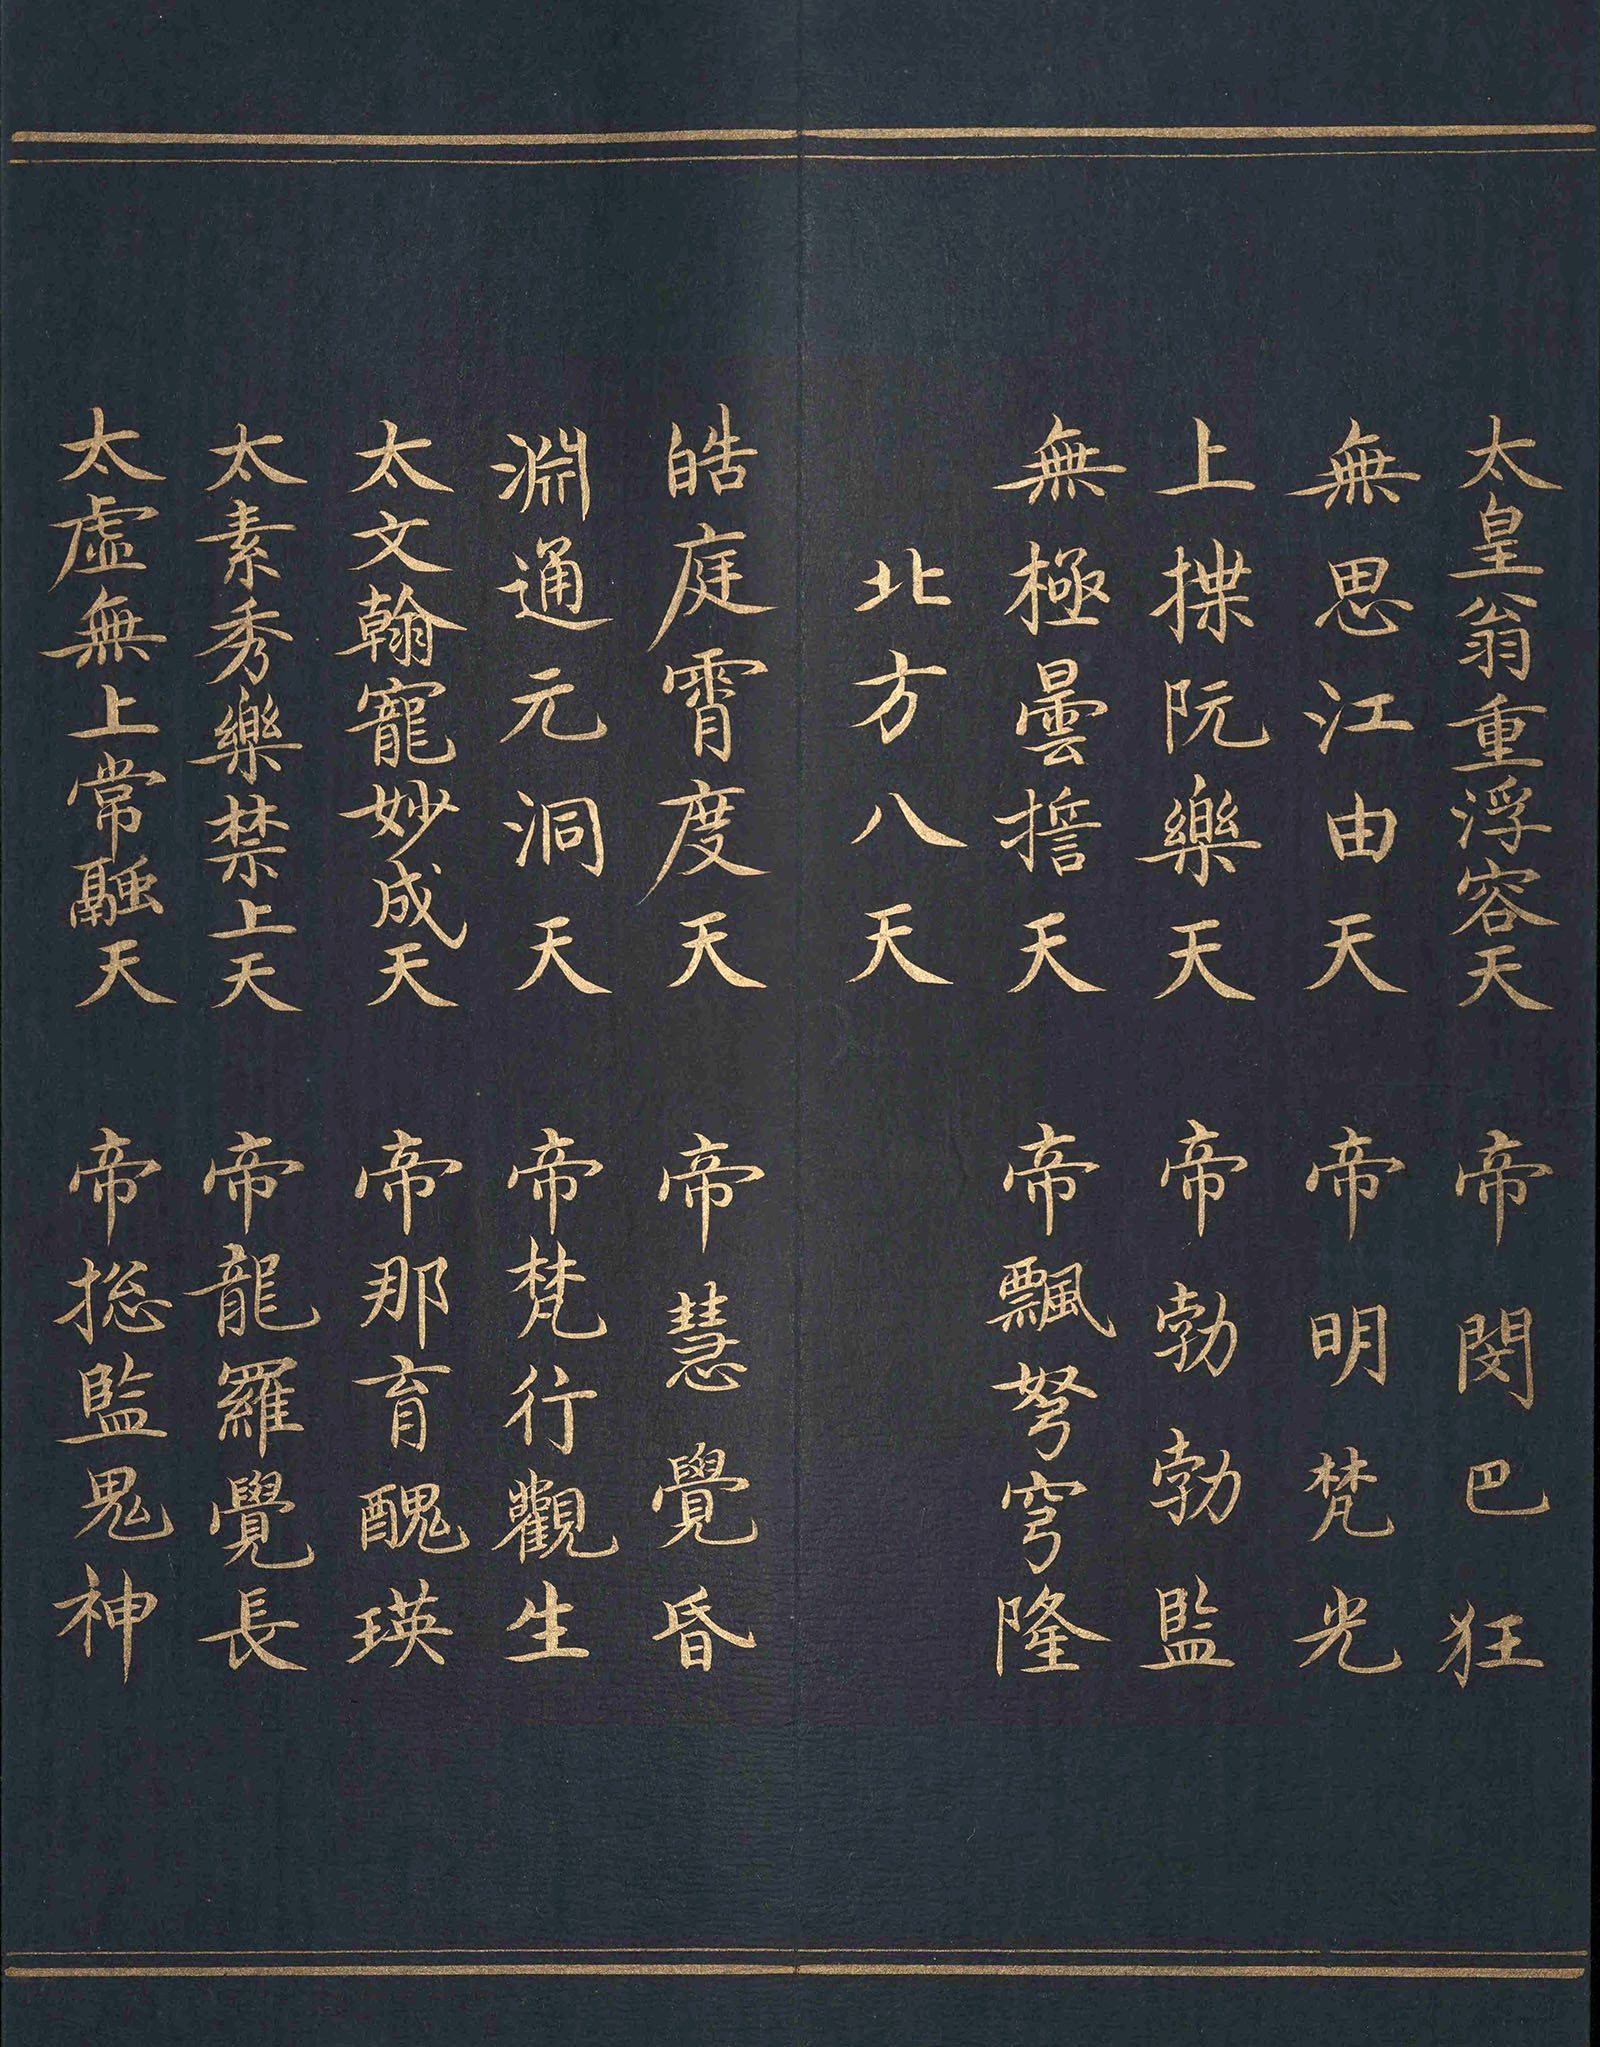 太皇翁重浮容天 帝閔巴狂
無思江由天 帝明梵光
上揲阮樂天 帝勃勃監
無極曇誓天 帝飄弩穹隆
北方八天
皓庭霄度天 帝慧覺昏
淵通元洞天 帝梵行觀生
太文翰寵妙成天 帝那育醜瑛
太素秀樂禁上天 帝龍羅覺長
太虛無上常融天 帝総監鬼神